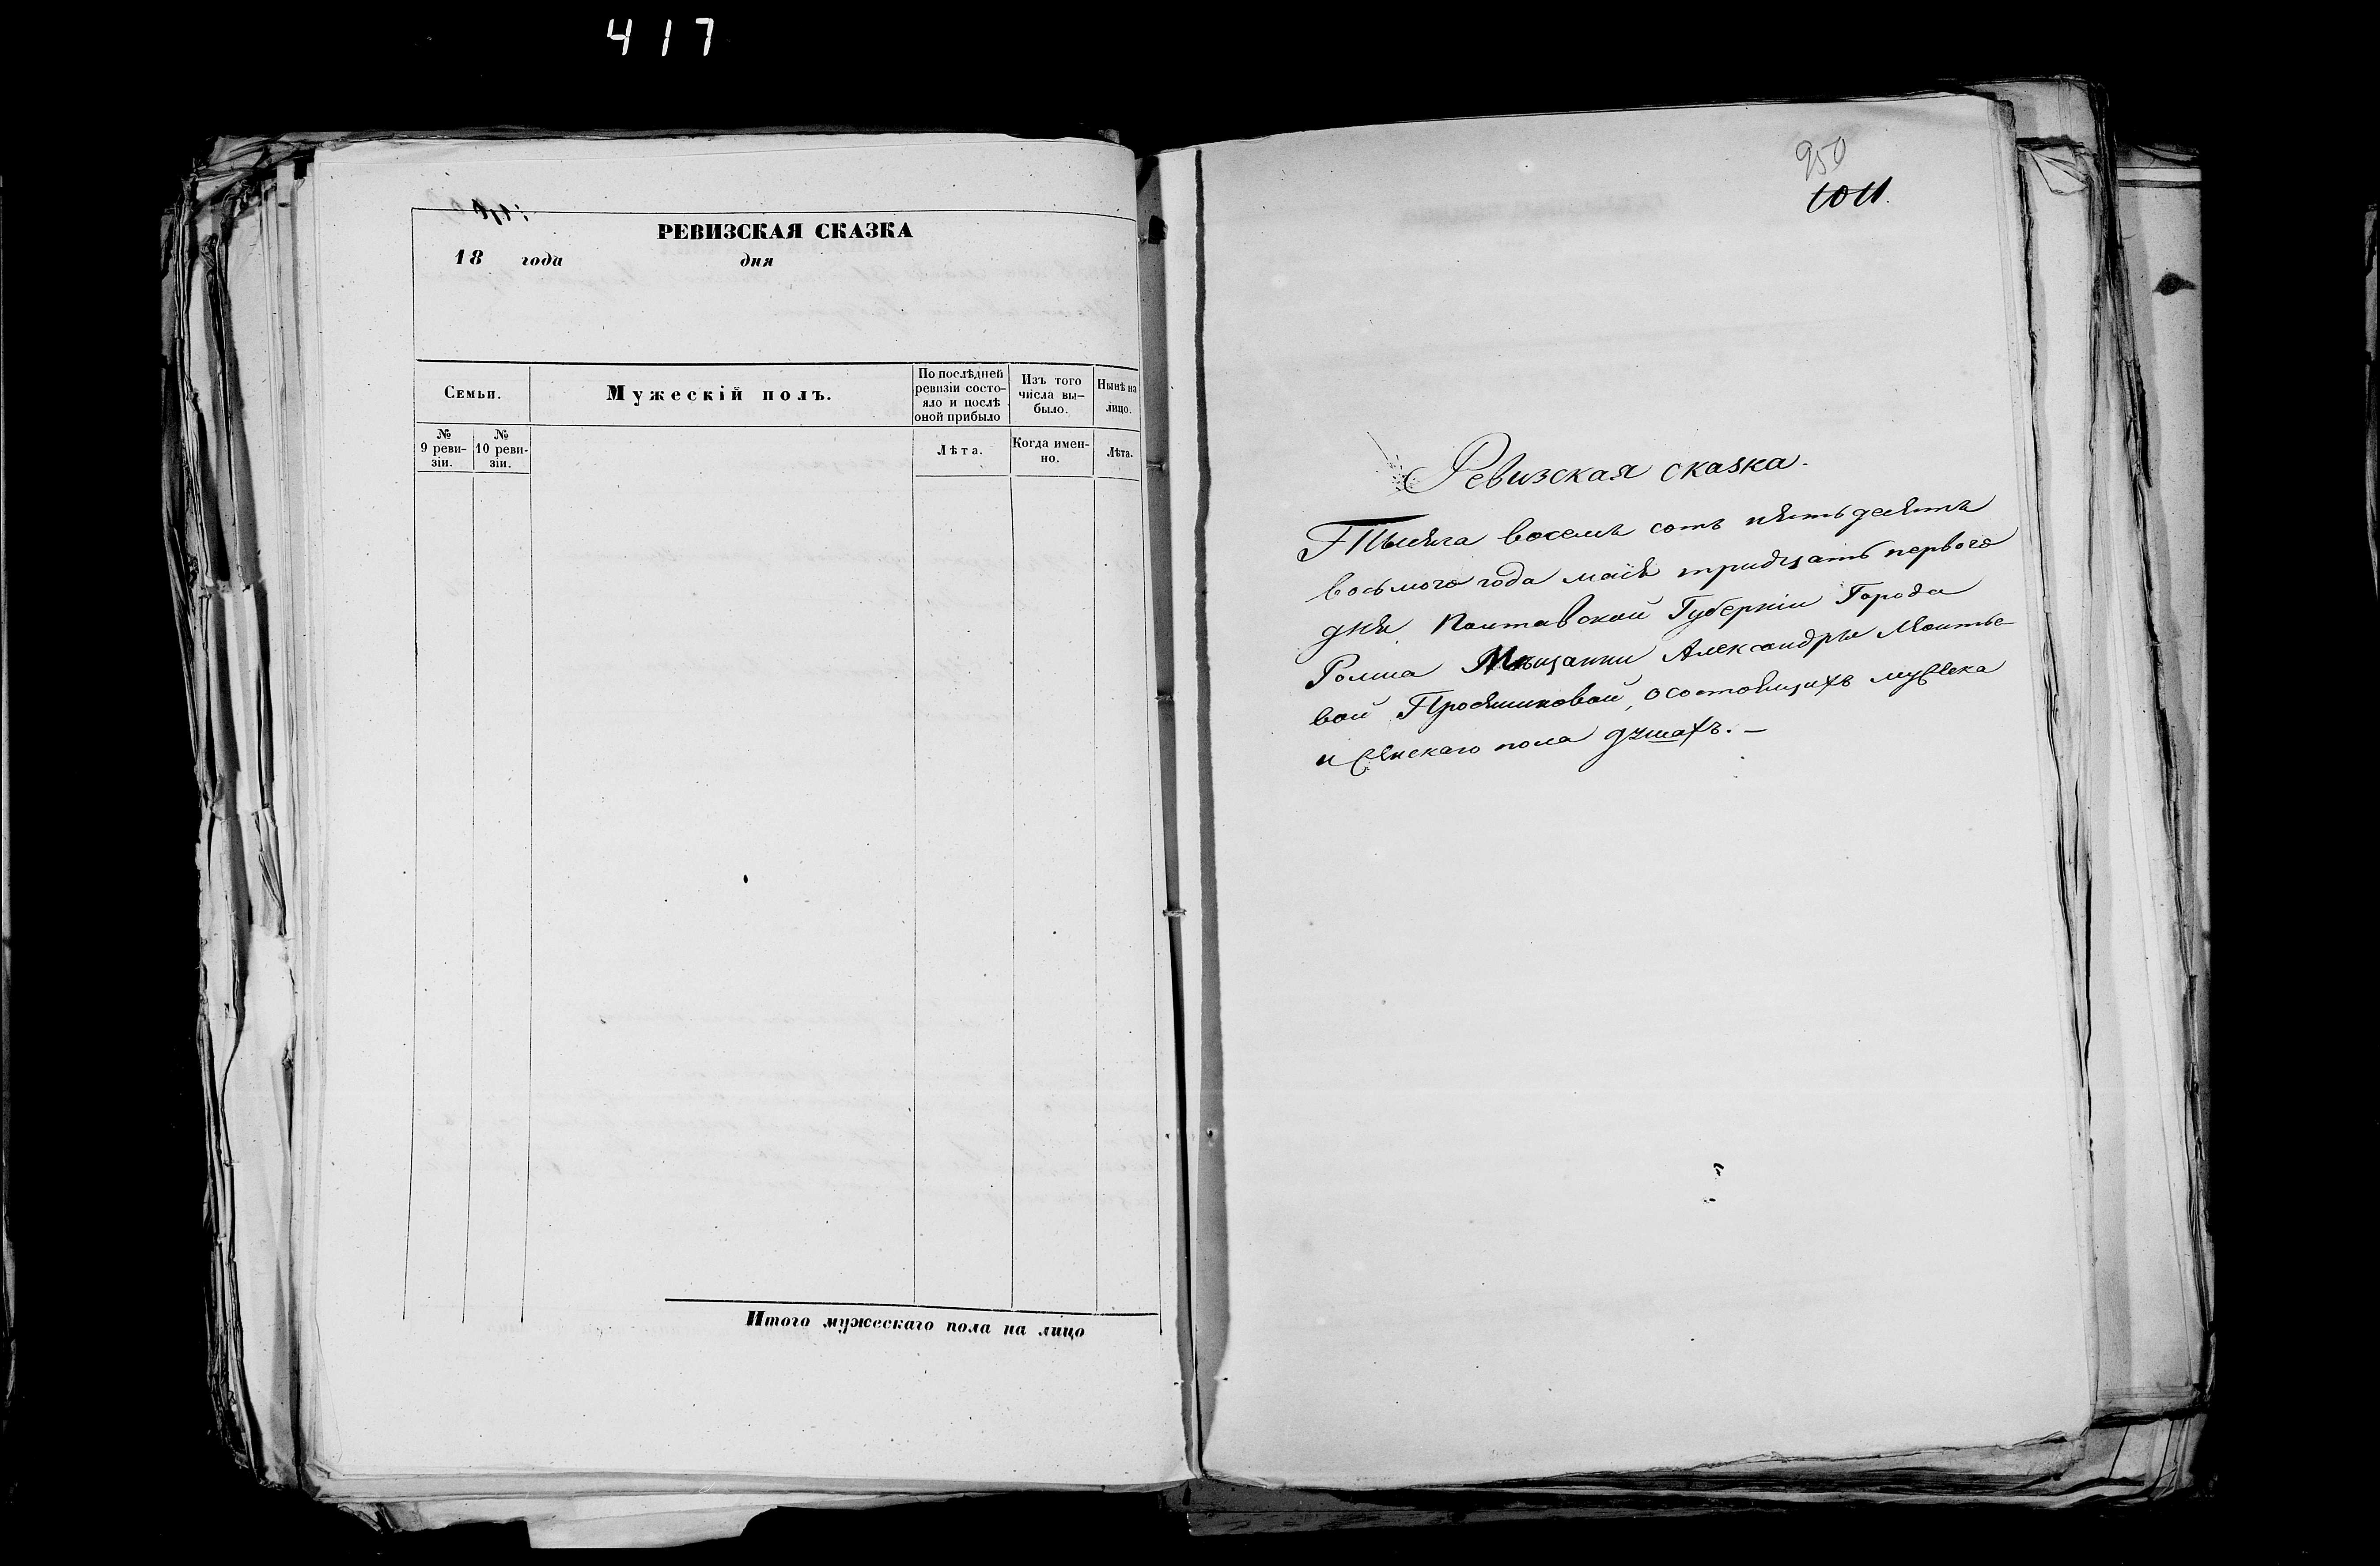 417
РЕВИЗСКАЯ СКАЗКА
18 года дня
Семьи.
Мужескій полъ.
По послѣдней
ревизіи состо-
яло и послѣ
оной прибыло
Изъ того
числа вы-
было.
Нынѣ на
лицо.
№
9 реви-
зіи.
№
10 реви-
зіи.
Лѣта.
Когда имен-
но.
Лѣта.
Итого мужескаго пола на лицо
950
1011.
Ревизская сказка.
Тысяча восемь сотъ пятьдесятъ
восьмого года маія тридцать первого
дня Полтавской Губерніи Города
Ромна Мѣщанки Александры
вой о состоящихъ мужеска
и женскаго пола душахъ. —